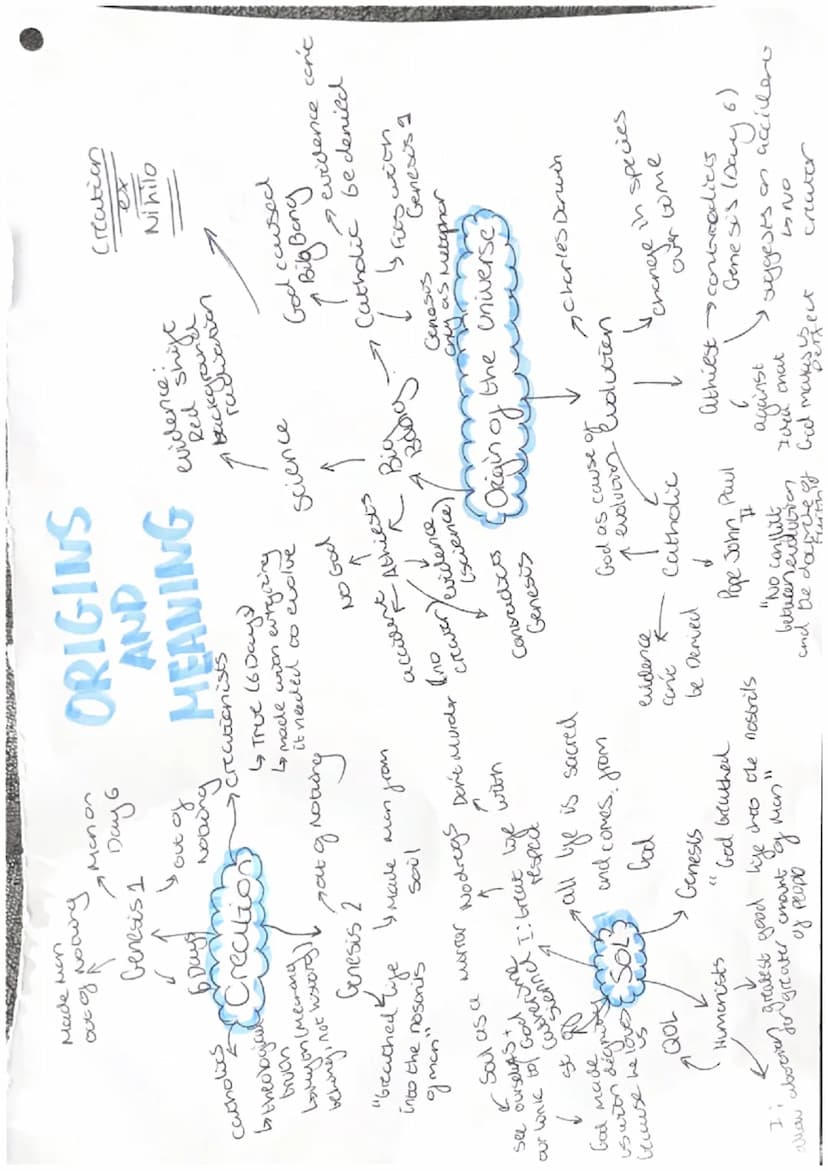 ORIGINS
AND
MEANING
Creation
ex
Nihilo
Creation
6 Days
Genesis 1
Made Man
out of nothing
Man on
Day 6
out of
nothing
Creationists
↳ True (6 Days)
↳ made with everything
it needed to evolve
Catholics
↳ theological
truth
↳ Myth (Meaning
behind not history)
Genesis 2
out of nothing
↳ Made man from
soil
"breathed life
into the nostrils
of man"
Origin of the universe
Big
Bang
Science
evidence:
Red shift
background
radiation
Athiests
NO God
accident
(no
creator)
evidence
(science)
contradicts
Genesis
Catholic
God caused
Big Bang
evidence can't
be denied
↳ Fits with
Genesis 1
Genesis
as Metaphor
Evolution
Charles Darwin
change in species
over time
Catholic
God as cause of
evolution
evidence
can't
be Denied
Pope John Paul
II
"No conflict
between evolution
and the doctrine of
Faith"
Athiest → contradicts
Genesis (Day 6)
suggests an accident
↳ No
creator
against
that
God makes us
perfect
SOL
all life is sacred
and comes from
God
Genesis
"God breathed
life into the nostrils
of man"
Humanists
QOL
greatest good
for greater amount
of people
I: allow abortion
I: treat life
with
respect
No drugs
Don't murder
Soul as a mirror
see ourselves +
our link to God
God made
us with dignity
because he loves
us